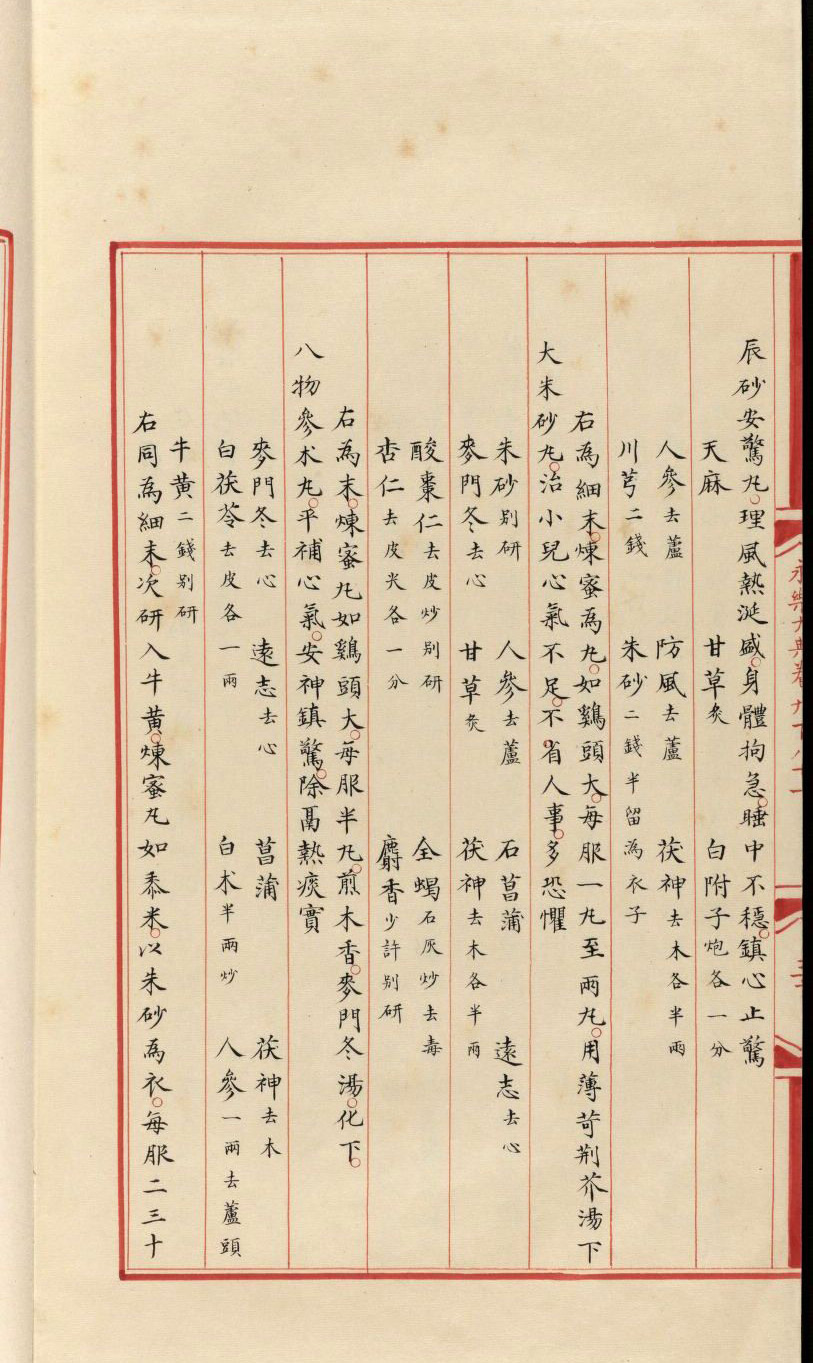 辰砂安驚丸。理風熱涎盛。身體拘急。睡中不穩。鎮心止驚
人參去蘆 防風去蘆 茯神去木各半兩
天麻 甘草炙 白附子炮各一分
川芎二錢 朱砂二錢半留為衣子
右為細末。煉蜜為丸。如鷄頭大。每服一丸至兩丸。用薄苛荆芥湯下
大朱砂丸。治小兒心氣不足。不省人事。多恐懼
朱砂别研 人參去蘆 石菖蒲 遠志去心
麥門冬去心 甘草炙 茯神去木各半兩
酸棗仁去皮炒别研 全蝎石灰炒去毒
杏仁去皮尖各一分 麝香少許别研
右為末。煉蜜丸如鷄頭大。每服半丸。煎木香。麥門冬湯。化下。
八物參朮丸。平補心氣。安神鎮驚。除鬲熱痰實
麥門冬去心 遠志去心 菖蒲 茯神去木
白茯苓去皮各一兩 白朮半兩炒 人參一兩去蘆頭
牛黄二錢别研
右同為細末。次研入牛黄。煉蜜丸如黍米。以朱砂為衣。每服二三十